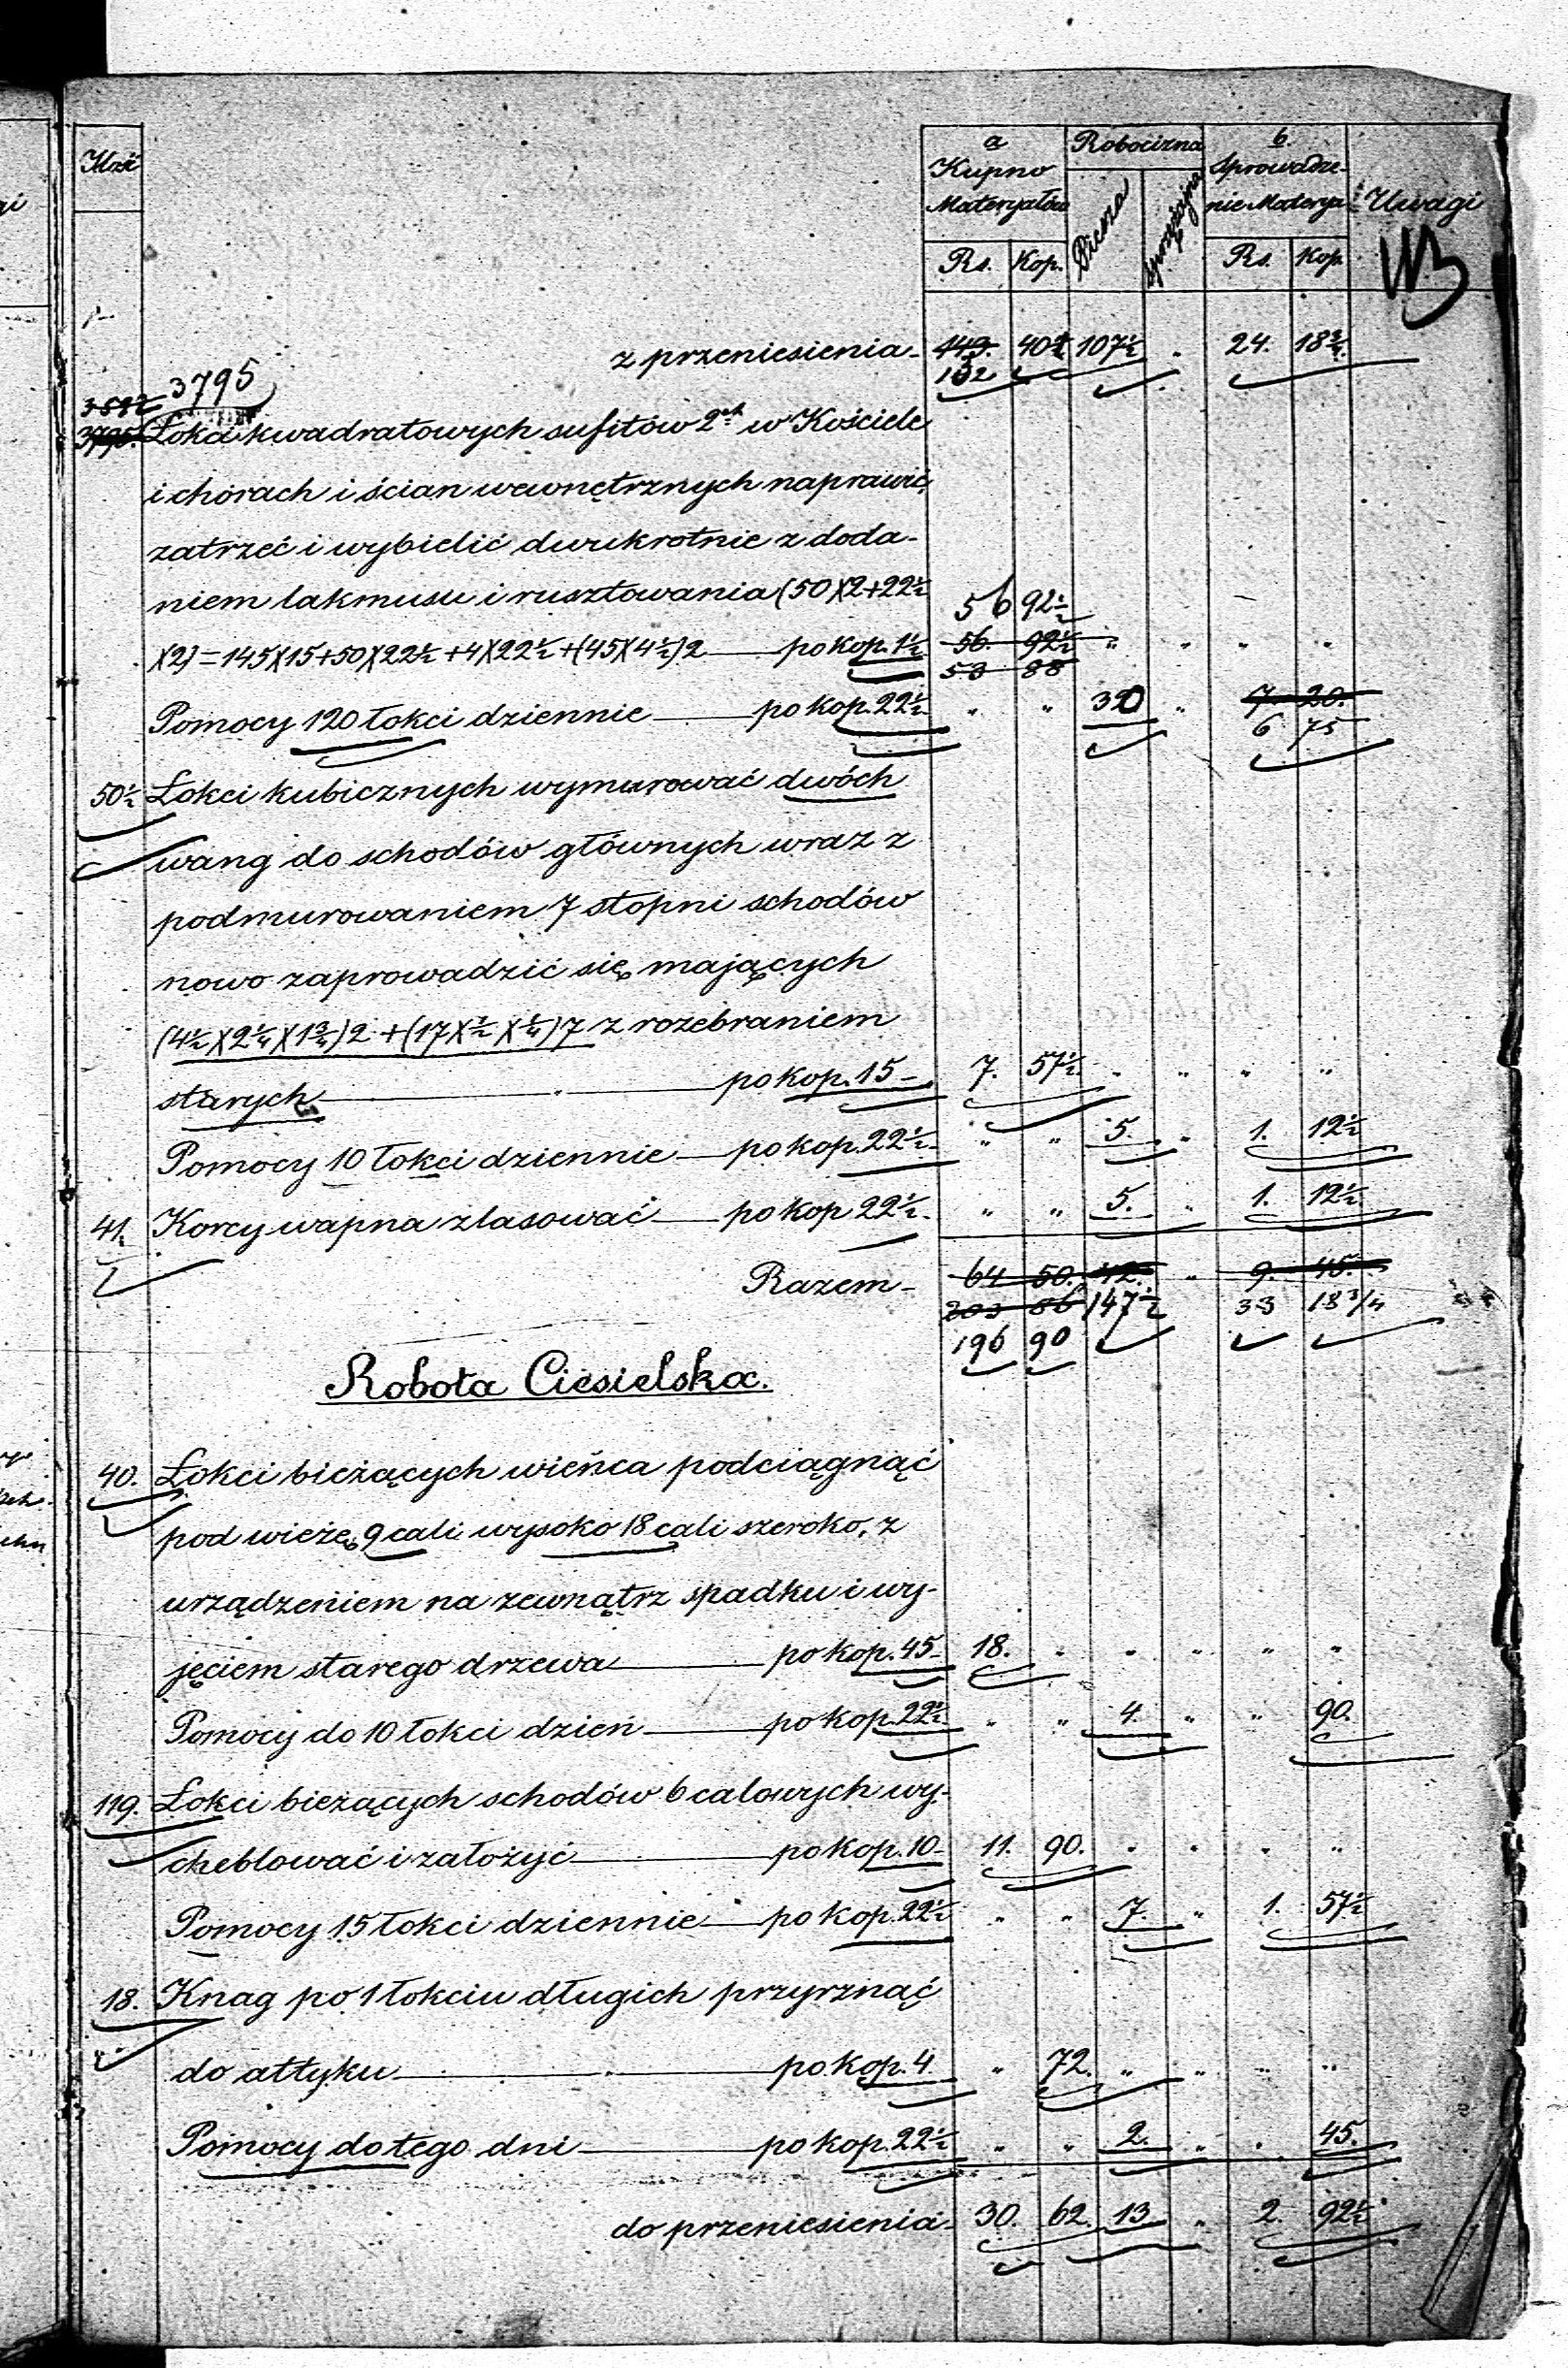 Ilość
a
Kupno
Materyałów
Robocizna
Piesza
Sprzężajna
b.
Sprowadze-
nie Materya
Uwagi
Rs. Kop. Rs. Kop.
z przeniesienia 149. 40½ 107½ " 24. 18¾
132
3795
3795. Łokci kwadratowych sufitów 2ch w Kościele
i chórach i ścian wewnętrznych naprawić,
zatrzeć i wybielić dwukrotnie z doda-
niem lakmusu i rusztowania (50X2+22½ 56 92½
X2)=145X15+50X22½+4X22½+(45X4½)2 — po kop. 1½ 56. 92½ " " " "
53 88
Pomocy 120 łokci dziennie — po kop. 22½ " " 30 " 7. 20.
6 75
50½ Łokci kubicznych wymurować dwóch
wang do schodów głównych wraz z
podmurowaniem 7 stopni schodów
nowo zaprowadzić się mających
(4½X2¼X1¾)2+(17X½X¼)7 z rozebraniem
starych — po kop. 15 — 7. 57½ " " " "
Pomocy 10 łokci dziennie — po kop. 22½ " " 5. " 1. 12½
41. Korcy wapna zlasować — po kop 22½ " " 5. " 1. 12½
Razem — 64 50. 42. " 9. 45.
203 86 147½ 33 18 3/4
196 90
Robota Ciesielska.
40. Łokci bieżących wieńca podciągnąć
pod wieżę, 9 cali wysoko 18 cali szeroko, z
urządzeniem na zewnątrz spadku i wy-
jęciem starego drzewa — po kop. 45 — 18. " " " " "
Pomocy do 10 łokci dzień — po kop. 22½ " " 4. " " 90.
119. Łokci bieżących schodów 6 calowych wy-
cheblować i założyć — po kop. 10 — 11. 90. " " " "
Pomocy 15 łokci dziennie — po kop. 22½ " " 7. " 1. 57½
18. Knag po 1 łokciu długich przyrznąć
do attyku — po kop. 4 " 72. " " " "
Pomocy do tego dni — po kop. 22½ " " 2. " " 45.
do przeniesienia — 30. 62. 13 " 2. 92½